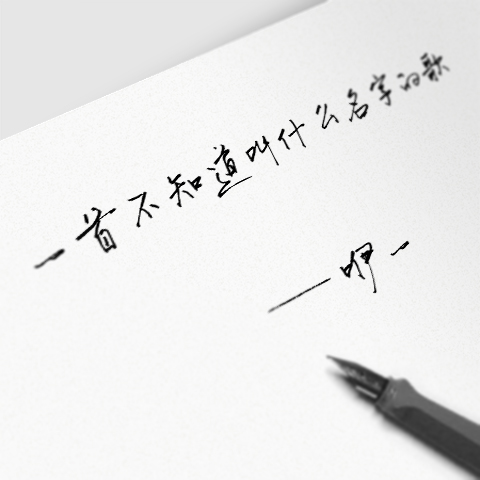 一首不知道叫什么名字的歌
——呷一